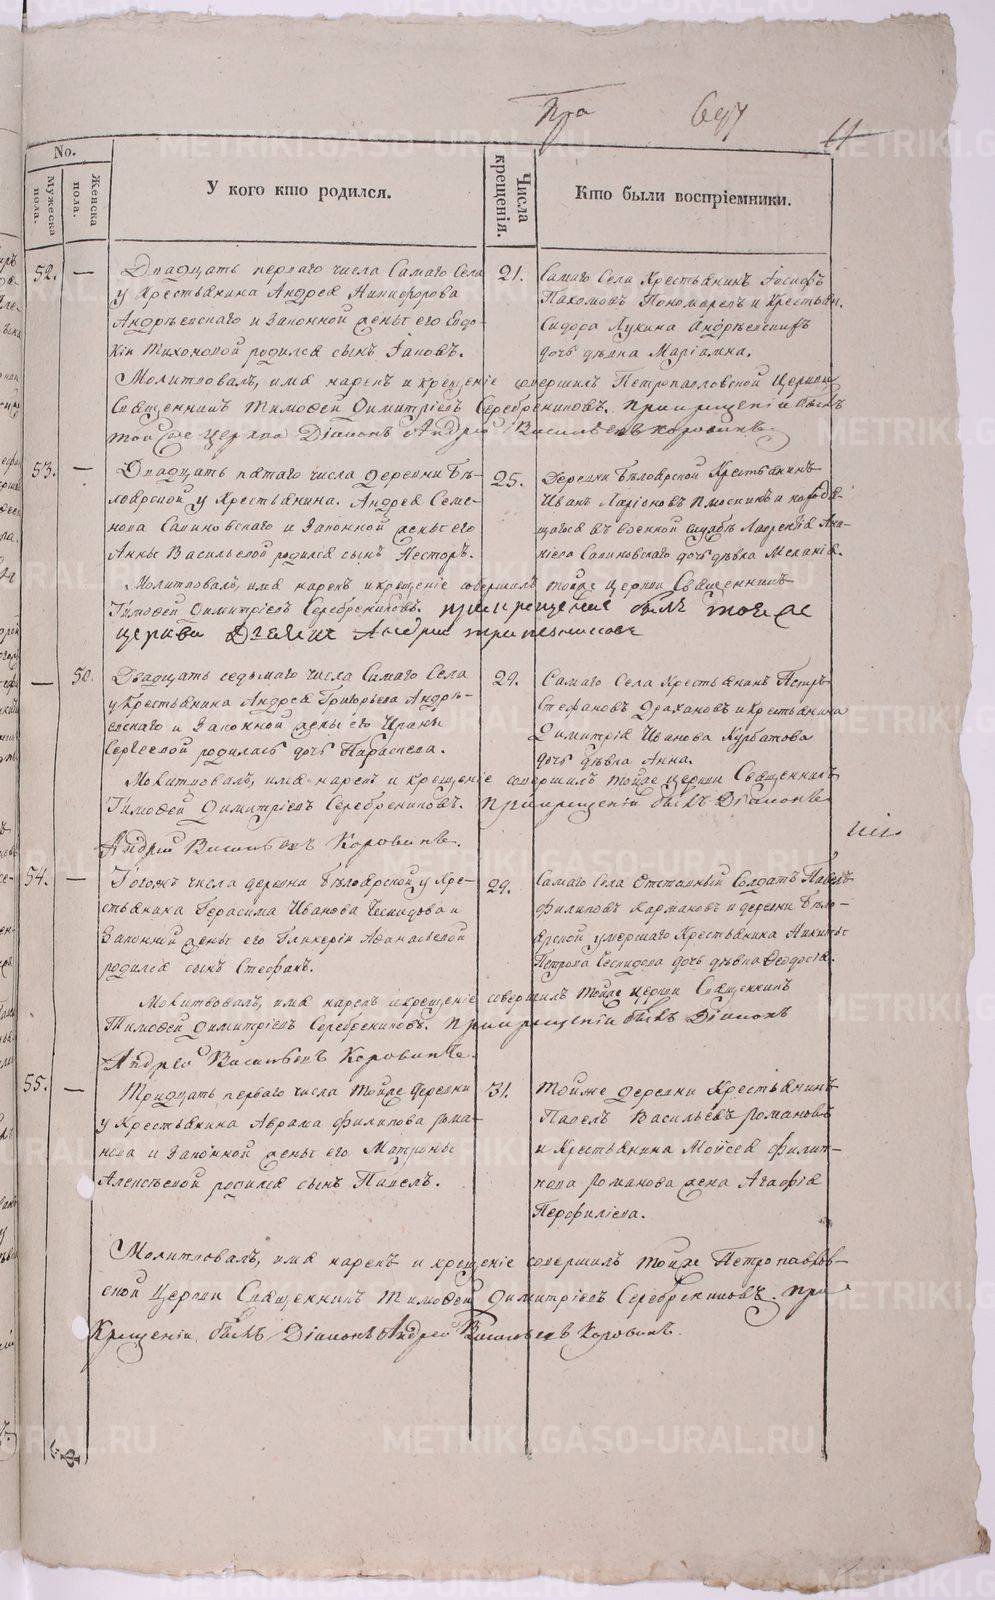 Пра
11
No.
Мужеска пола.
Женска пола.
У кого кто родился.
Числа крещенія.
Кто были воспріемники.
52.
—
Двадцать перваго числа Самаго Села
у Крестьянина Андрея Никифорова
Андрѣевскаго и Законной жены его Евдо-
кіи Тихоновой родился сынъ Іаковъ.
21.
Самаго Села Крестьянинъ Іосифъ
Пахомовъ Пономаревъ и Крестьян.
Сидора Лукина Андрѣевскихъ
дочь дѣвка Маріамна.
Молитвовалъ, имя нарекъ и крещеніе совершилъ Петропавловской Церкви
Священникъ Тимофей Димитріевъ Серебрениковъ. При крещеніи былъ
той же церкви Діаконъ Андрей Васильевъ Коровинъ.
53.
—
Двадцать пятаго числа деревни Бѣ-
лоярской у Крестьянина Андрея Семе-
нова Салиновскаго и Законной жены его
Анны Васильевой родился сынъ Несторъ.
25.
Деревни Бѣлоярской Крестьянинъ
Иванъ Ларіоновъ и находя-
щагося въ военной службѣ Лаврентія Ана-
ніева Салиновскаго дочь дѣвка Меланія.
Молитвовалъ, имя нарекъ и крещеніе совершилъ тойже Церкви Священникъ
Тимофей Димитріевъ Серебрениковъ. при крещеніе былъ тойже
церкви Андрей
—
50.
Двадцать седьмаго числа Самаго Села
у Крестьянина Андрея Григорьева Андрѣ-
евскаго и Законной жены его Ирины
Сергеевой родилась дочь Параскева.
29.
Самаго Села Крестьянинъ Петръ
Стефановъ Драхановъ и Крестьянина
Димитрія Иванова Курбатова
дочь дѣвка Анна.
Молитвовалъ, имя нарекъ и крещеніе совершилъ тойже церкви Священникъ
Тимофей Димитріевъ Серебрениковъ. При крещеніи былъ Діаконъ
Андрей Васильевъ Коровинъ.
54.
—
Тогожъ числа деревни Бѣлоярской у Кре-
стьянина Герасима Иванова Чеснидова и
Законной жены его Гликеріи Афанасьевой
родился сынъ Стефанъ.
29.
Самаго Села Отставный Солдатъ Павелъ
Филиповъ Кармановъ и деревни Бѣло-
ярской умершаго Крестьянина Никиты
Петрова дочь дѣвка Феодосія.
Молитвовалъ, имя нарекъ и крещеніе совершилъ тойже церкви Священникъ
Тимофей Димитріевъ Серебрениковъ. При крещеніи былъ Діаконъ
Андрей Васильевъ Коровинъ.
55.
—
Тридцать перваго числа тойже деревни
у Крестьянина Аврама Филипова Рома-
нова и Законной жены его Матроны
Алексѣевой родился сынъ Павелъ.
31.
Тойже деревни Крестьянинъ
Павелъ Васильевъ Романовъ
и Крестьянина Моисея Филип-
пова Романова жена Агафія
Перфиліева.
Молитвовалъ, имя нарекъ и крещеніе совершилъ тойже Петропавлов-
ской Церкви Священникъ Тимофей Димитріевъ Серебрениковъ. При
Крещеніи былъ Діаконъ Андрей Васильевъ Коровинъ.
METRIKI.GASO-URAL.RU